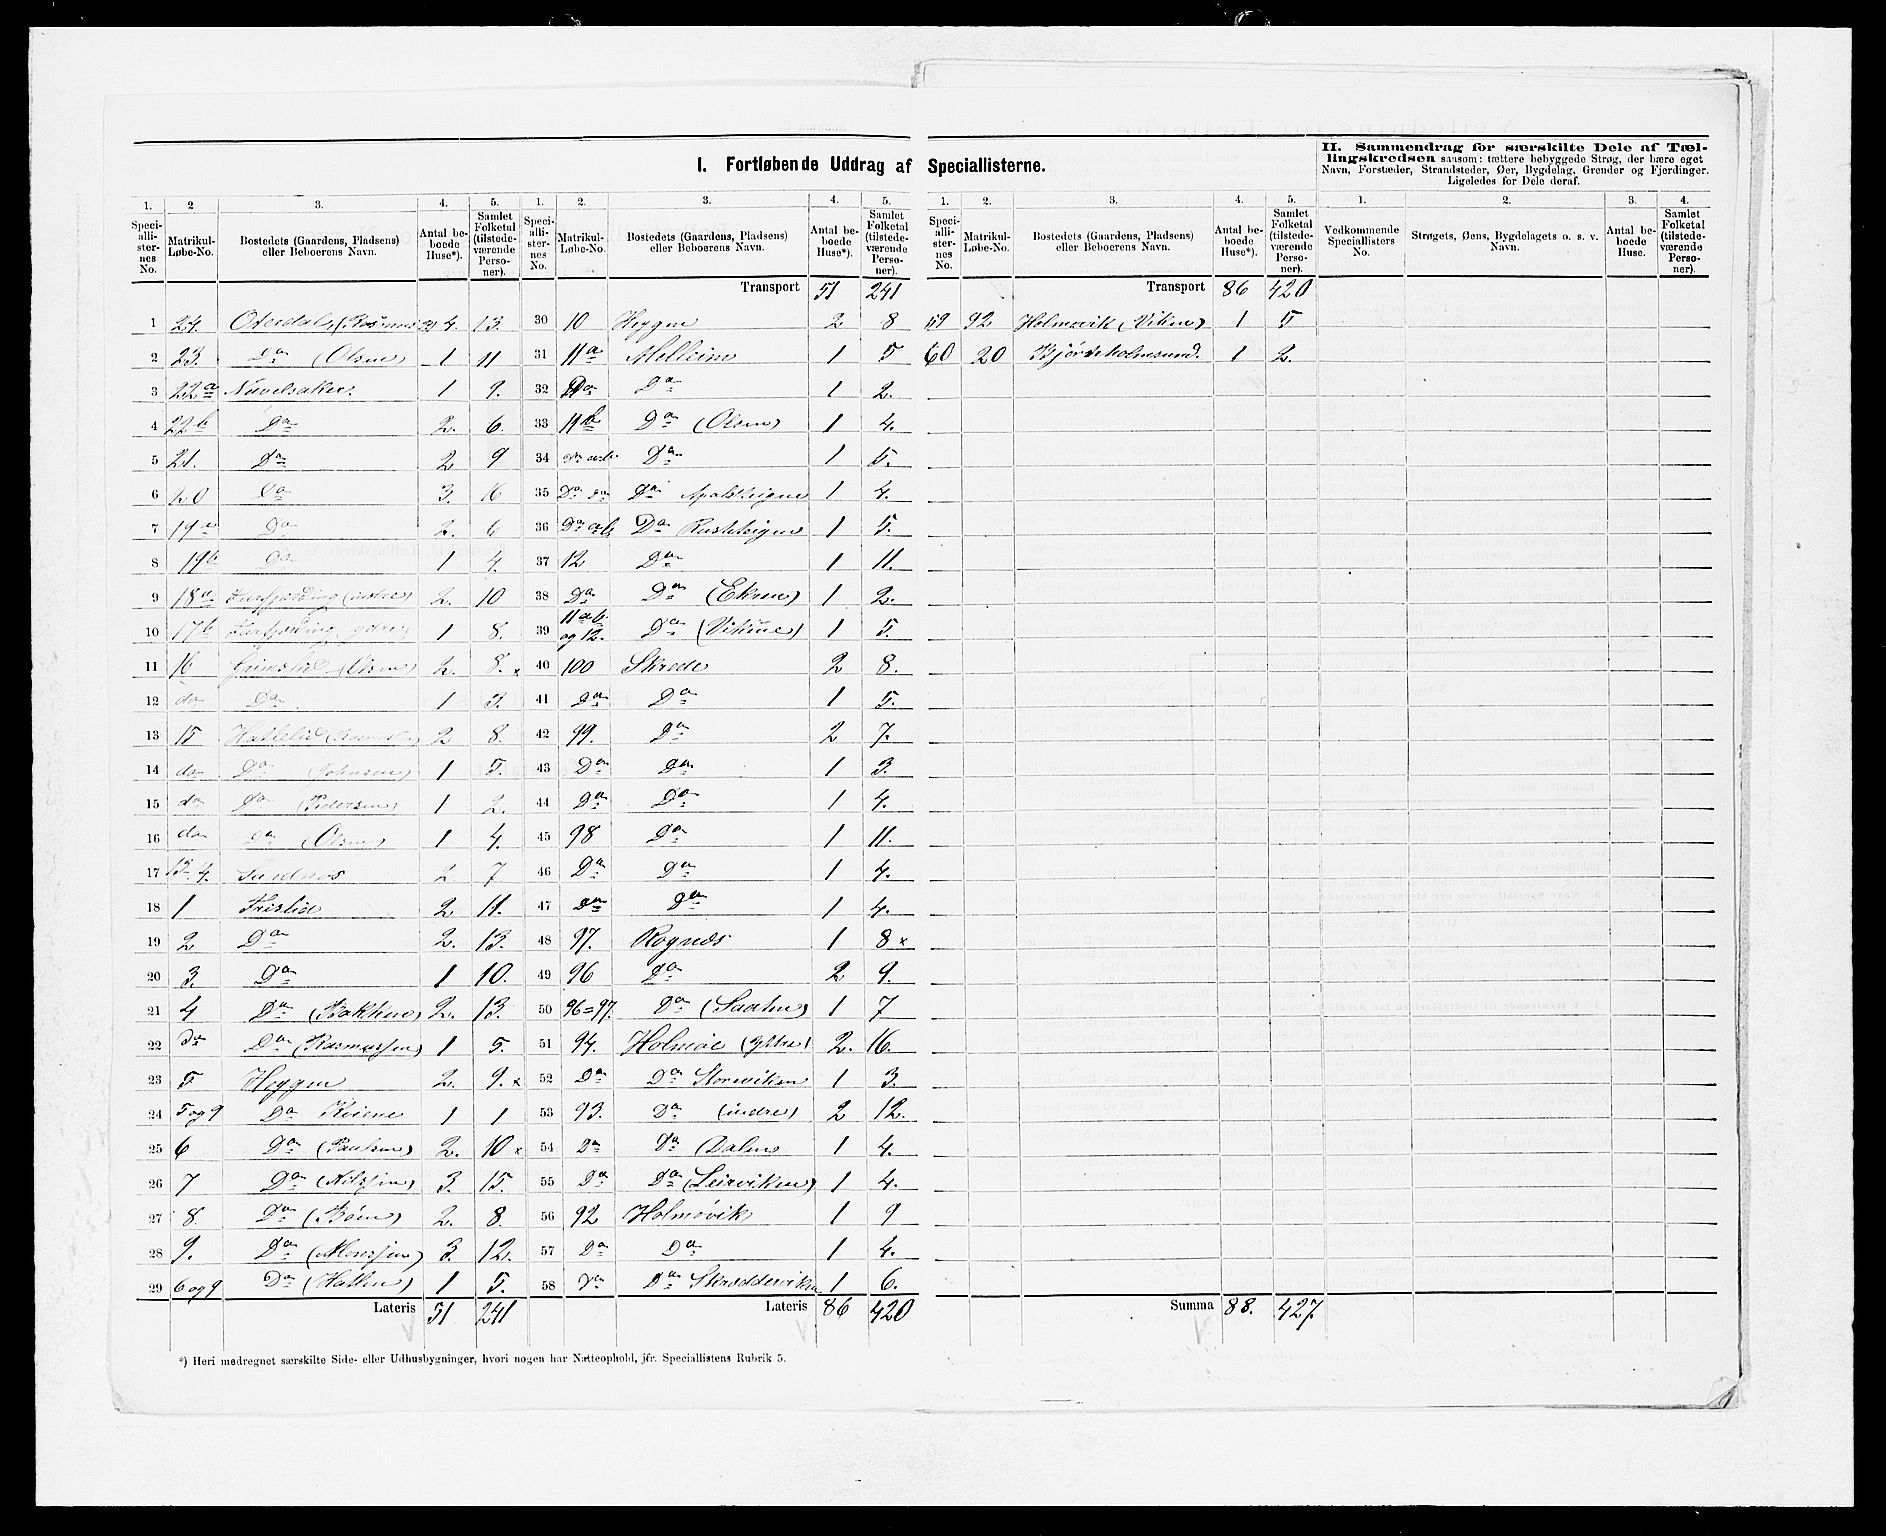 I. Fortløbende Uddrag af Speciallisterne.
II. Sammendrag for særskilte Dele af Tæl-
lingskredsen saasom: tættere bebyggede Strøg, der bære eget
Navn, Forstæder, Strandsteder, Øer, Bygdelag, Grender og Fjerdinger.
Ligeledes for Dele deraf.
1. 2 3. 4. 5. 1. 2. 3. 4. 5. 1. 2. 3. 4. 5. 1. 2. 3. 4.
Speciallisternes No. Matrikul-Løbe-No. Bostedets (Gaardens, Pladsens) eller Beboerens Navn. Antal beboede Huse*). Samlet Folketal (tilstedeværende Personer).
Speciallisternes No. Matrikul-Løbe-No. Bostedets (Gaardens, Pladsens) eller Beboerens Navn. Antal beboede Huse*). Samlet Folketal (tilstedeværende Personer).
Speciallisternes No. Matrikul-Løbe-No. Bostedets (Gaardens, Pladsens) eller Beboerens Navn. Antal beboede Huse*). Samlet Folketal (tilstedeværende Personer).
Vedkommende Speciallisters No. Strøgets, Øens, Bygdelagets o. s. v. Navn. Antal beboede Huse. Samlet Folketal (tilstedeværende Personer).
1 24. 4. 13.
2 23. Da (Olsen) 1 11
3 22a 1 9.
4 22b Da 2. 6.
5 21. Da 2 9
6 20 Da 3. 16
7 19a Da 2. 6
8 19b Da 1 4.
9 18a (indre) 2. 10
10 17b 1 8.
11 16 Grimslid (Olsen) 2. 8. x
12 do Da 1 3.
13 15 2 8.
14 do Da (Johnsen) 1 5.
15 do Da (Pedersen) 1 2.
16 do Da (Olsen) 1 4.
17 13. 4. Sundnes 2 7
18 1 Frislid 2 11.
19 2 Da 2. 13.
20 3. Da 1 10.
21 4 Da (Bakken) 2. 13.
22 do Da (Rasmussen) 1 5.
23 5 Heggen 2. 9. x
24 5 og 9 Da 1 1
25 6 Da (Paulsen) 2. 10 x
26 7 Da (Nilssen) 3. 15.
27 8. Da (Bøen) 2. 8.
28 9. Da (Monssen) 3. 12.
29 6 og 9 Da (Hatlen) 1 5.
Lateris 51 241
Transport 51 241
30 10 Heggen 2 8
31 11a Melheim 1 5
32 Da Da 1 2.
33 11b Da (Olsen) 1 4.
34 Da a-b. Da 1 5.
35 Da da Da 1 4.
36 Da a-b Da 1 5.
37 12 Da 1 11.
38 Da Da (Ekren) 1 2.
39 11 a b. og 12. Da (Vikene) 1 5.
40 100 Skrede 2 8.
41 Da Da 1 5.
42 99. Da 2 7.
43 Da Da 1 3.
44 Da Da 1 4.
45 98 Da 1 11.
46 Da Da 1 4.
47 Da Da 1 4.
48 97. Rognes 1 8 x
49 96 Da 2 9.
50 96=97. Da 1 7
51 94. Holmøie (Yttre) 2. 16.
52 Da Da Storeviken 1 3.
53 93. Da (indre) 2 12.
54 Da Da (Dalen 1 4.
55 Da Da (Leirviken) 1 4.
56 92 Holmøvik 1 9
57 Da Da 1 4.
58 Da Da Skreddervik 1 6.
Lateris 86 420
Transport 86 420
59 92 Holmøvik (Viken) 1 5
60 20 1 2.
Summa 88. 427.
*) Heri medregnet særskilte Side- eller Udhusbygninger, hvori nogen har Natteophold, jfr. Speciallistens Rubrik 5.